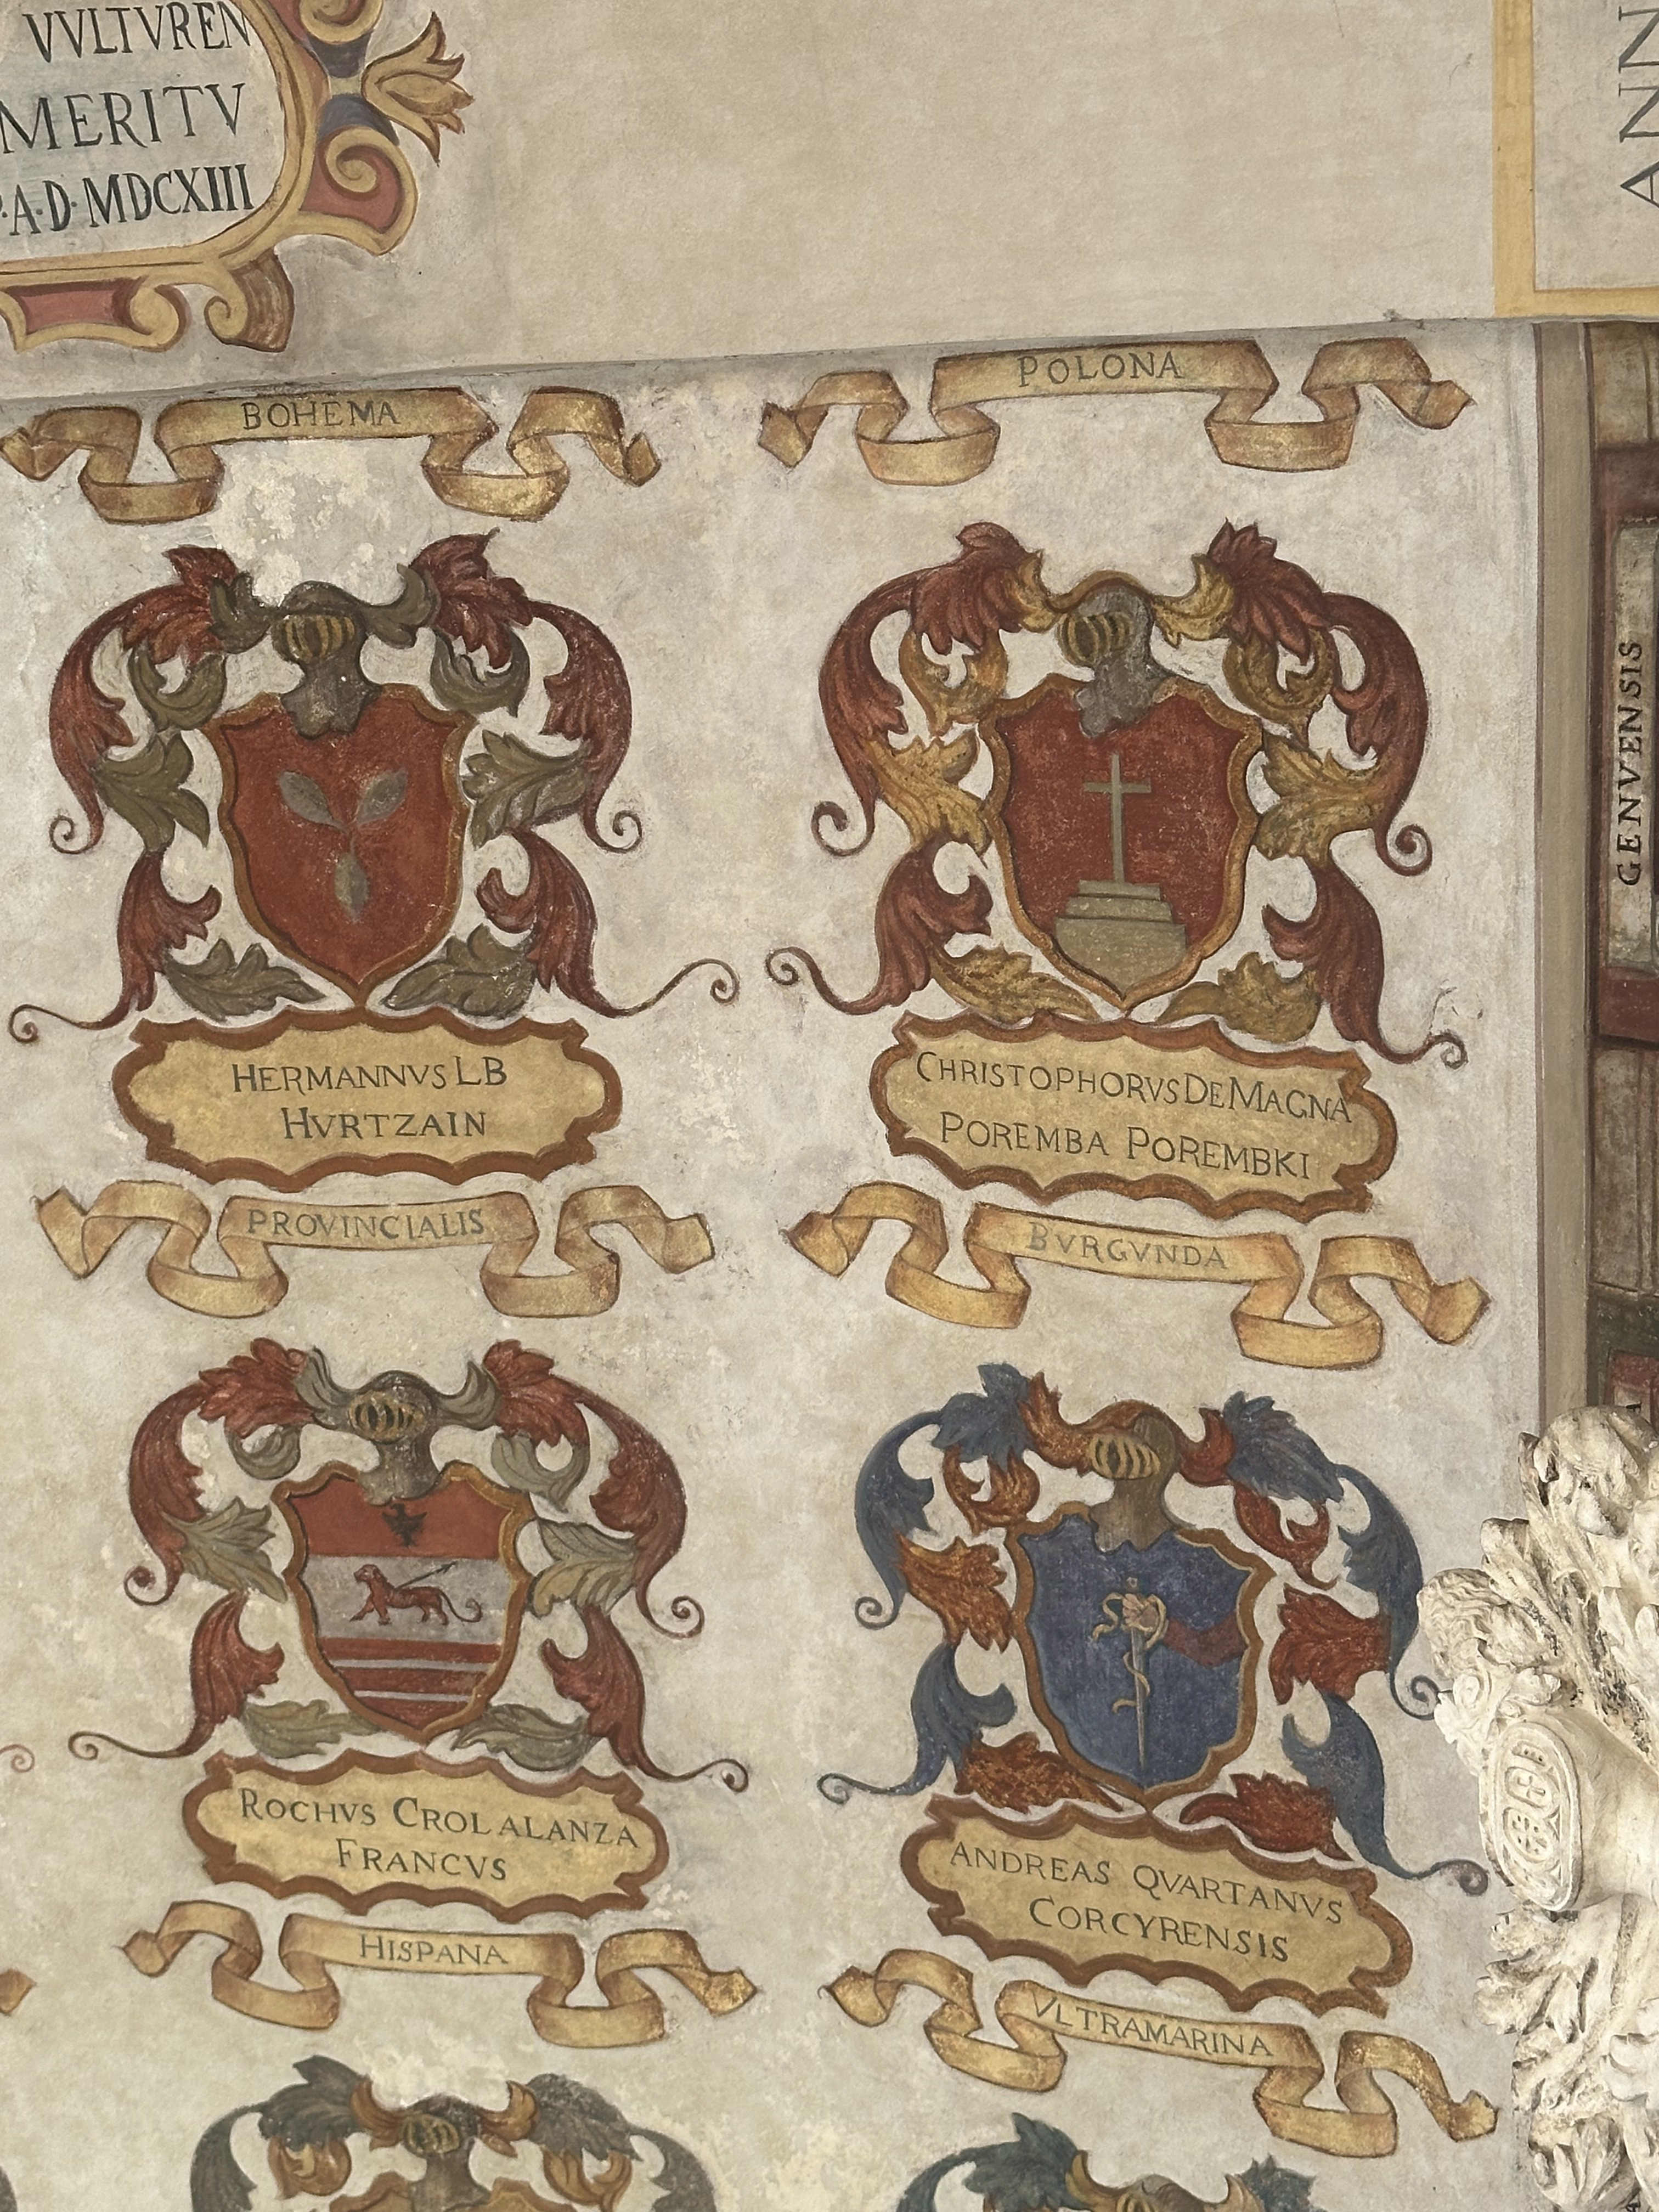 VVLTVREN
MERITV
P·A·D·MDCXIII
ANN
BOHEMA
POLONA
GENVENSIS
HERMANNVS LB
HVRTZAIN
CHRISTOPHORVS DE MAGNA
POREMBA POREMBKI
PROVINCIALIS
BVRGVNDA
ROCHVS CROLALANZA
FRANCVS
ANDREAS QVARTANVS
CORCYRENSIS
HISPANA
VLTRAMARINA